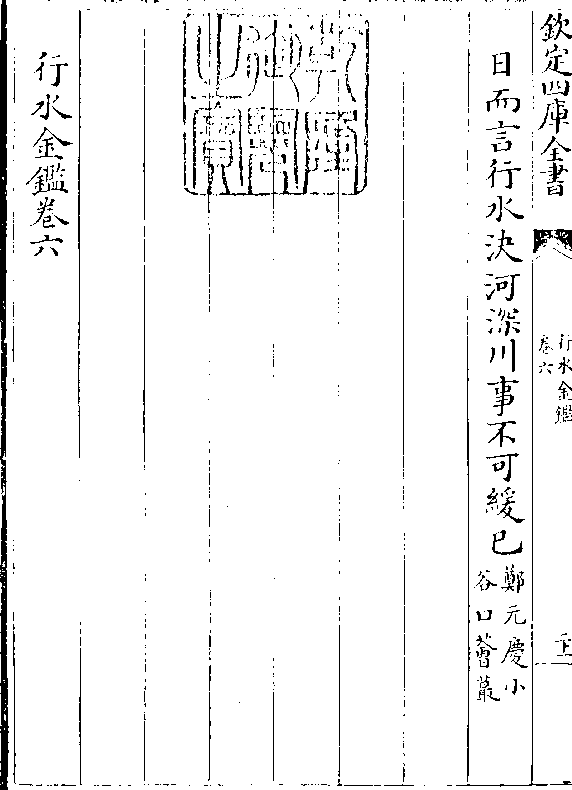 欽定四庫全書
行水金鑑
卷六
日而言行水決河深川事不可緩已
鄭元慶小
谷口薈蕞
行水金鑑卷六
乾隆御覽之寶